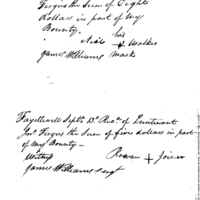 Fergus the Sum of Eight
Dollars in part of my
Bounty.
his
+ Walker
James Williams mark
Fayettvill Septr. 13 Recd. of Lieutenant
Jno. Fergus the Sum of five dollars in part
of my Bounty —
Witness
Rowan + Joiner
James Williams Sergt